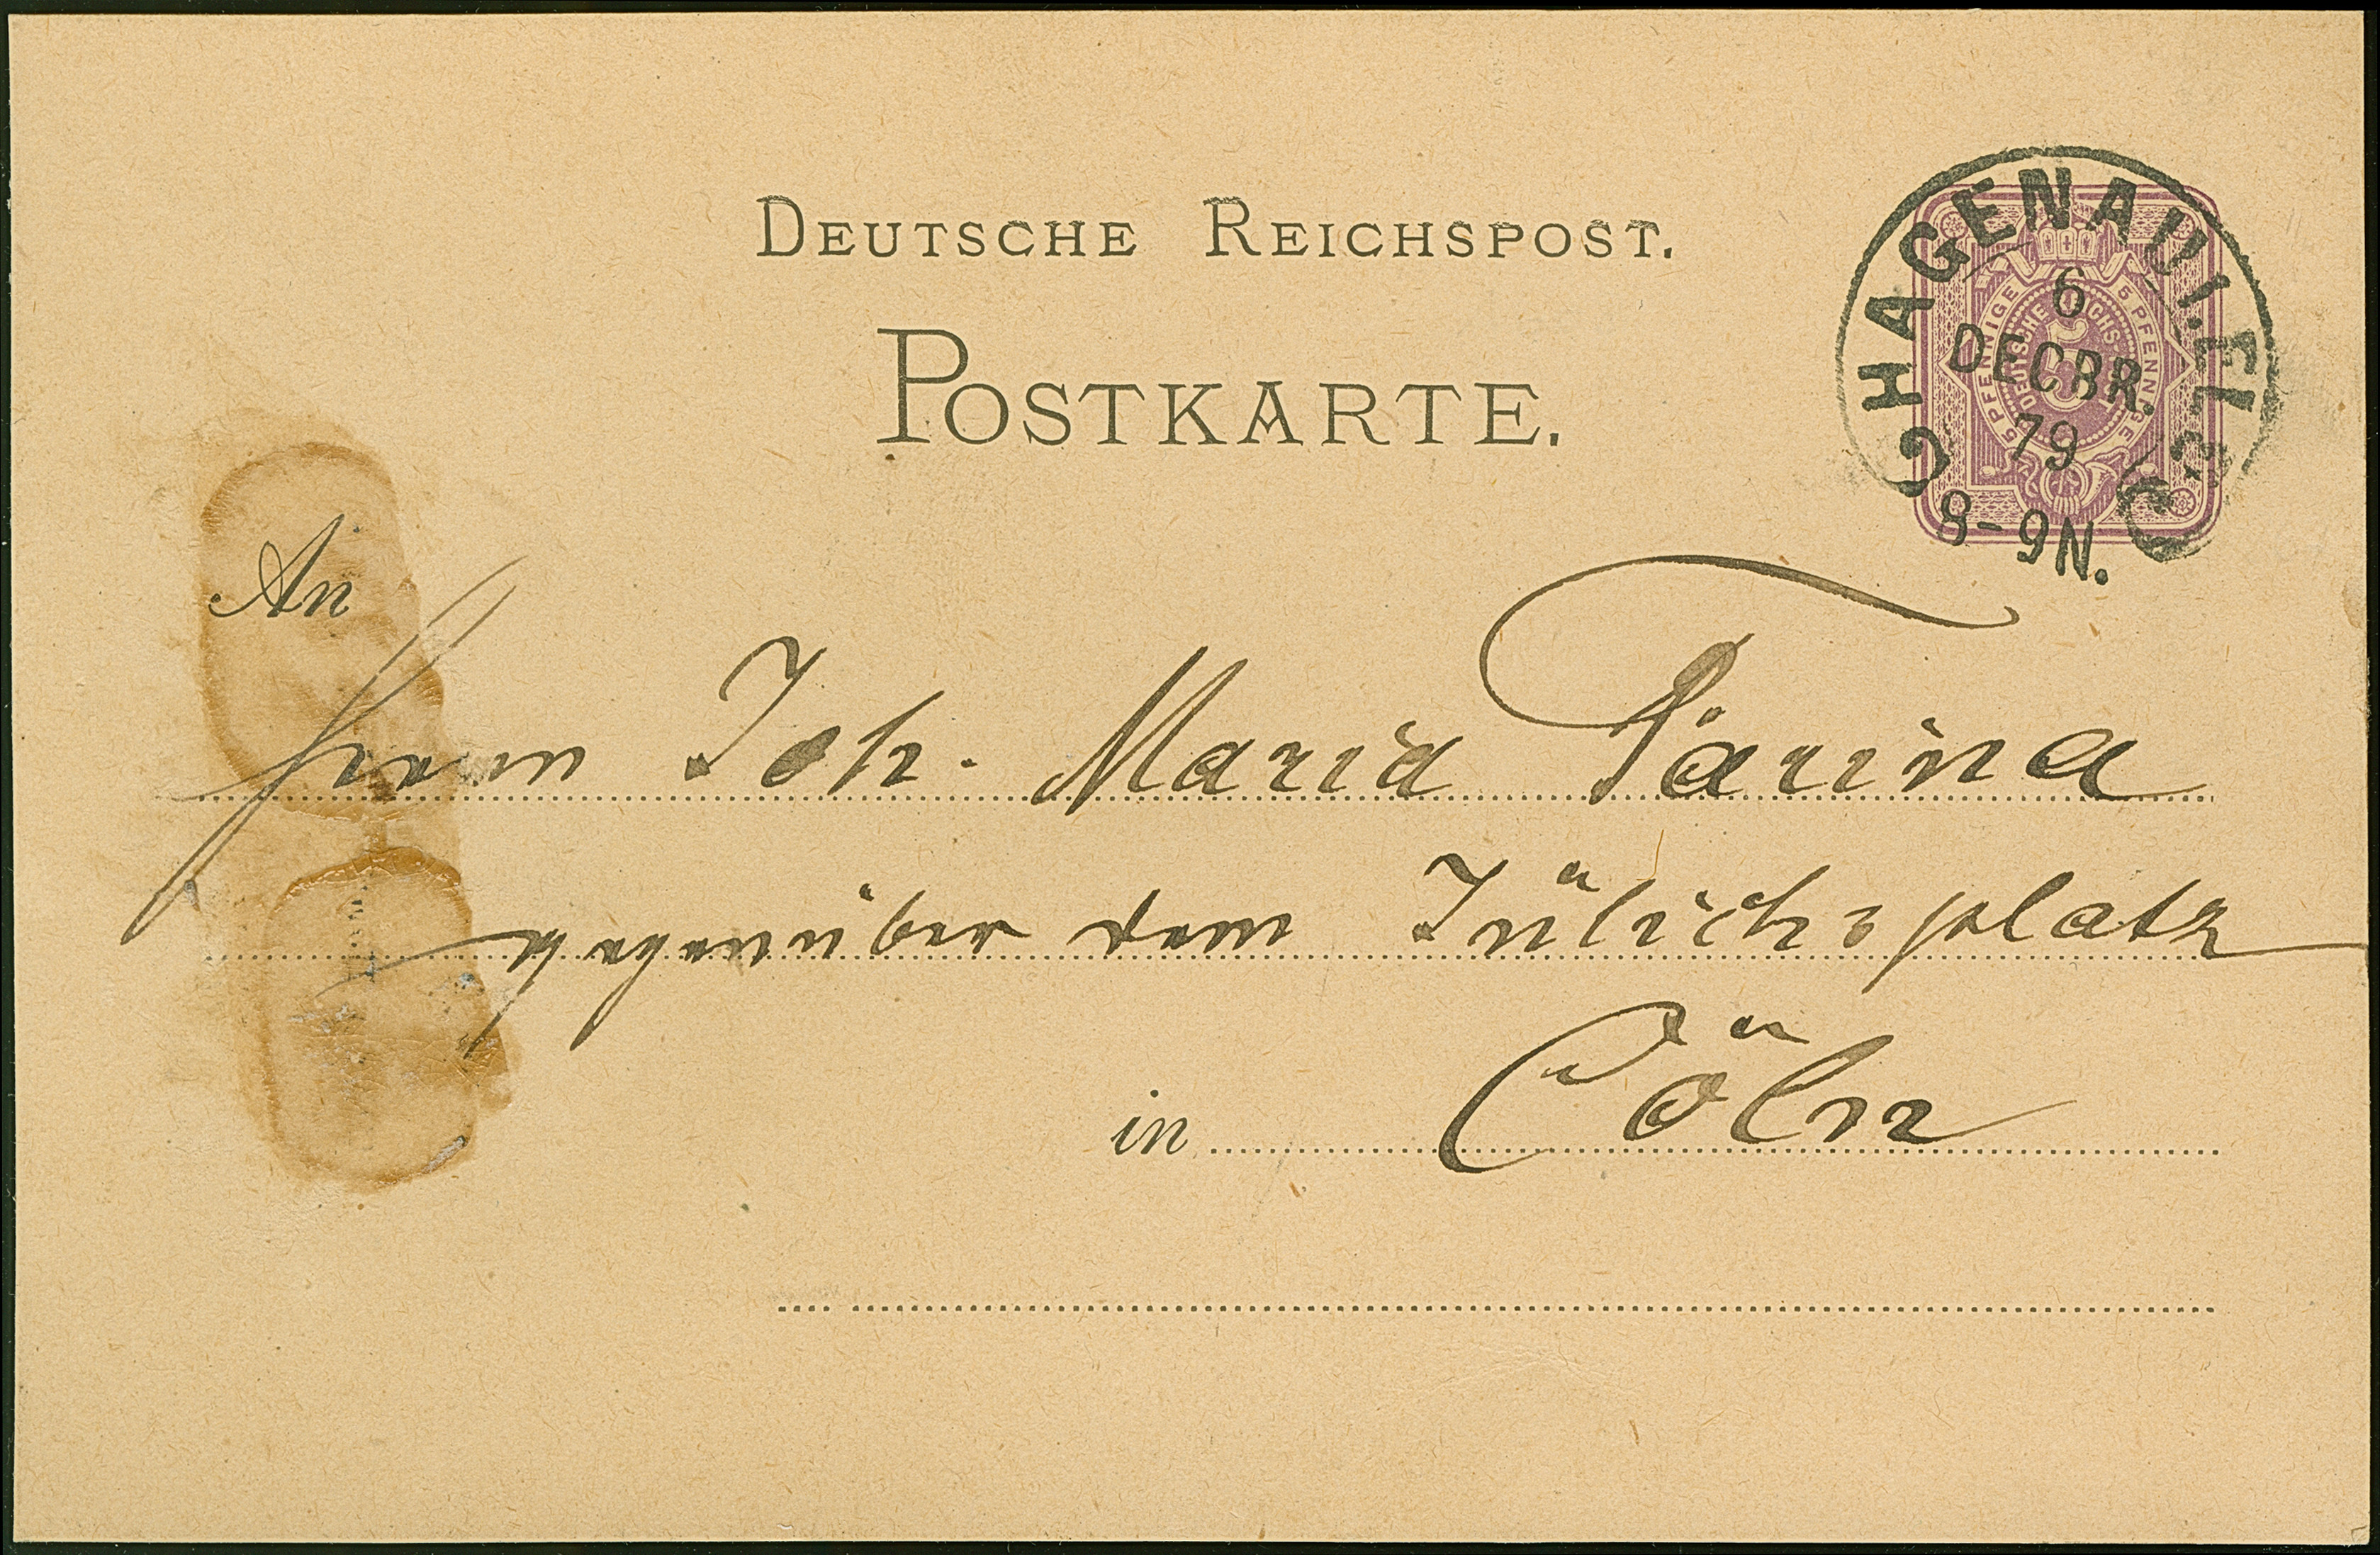 DEUTSCHE REICHSPOST.
POSTKARTE.
HAGENAU I. ELS.
6
DECBR.
79
8-9N.
5 PFENNIGE
5 PFENNIGE
DEUTSCHE REICHSPOST
5
An
Herrn Joh. Maria Farina
gegenüber dem Jülichsplatz
in Cöln